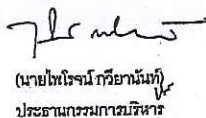 (นายไพโรจน์ กวียานันท์)
ประธานกรรมการบริหาร